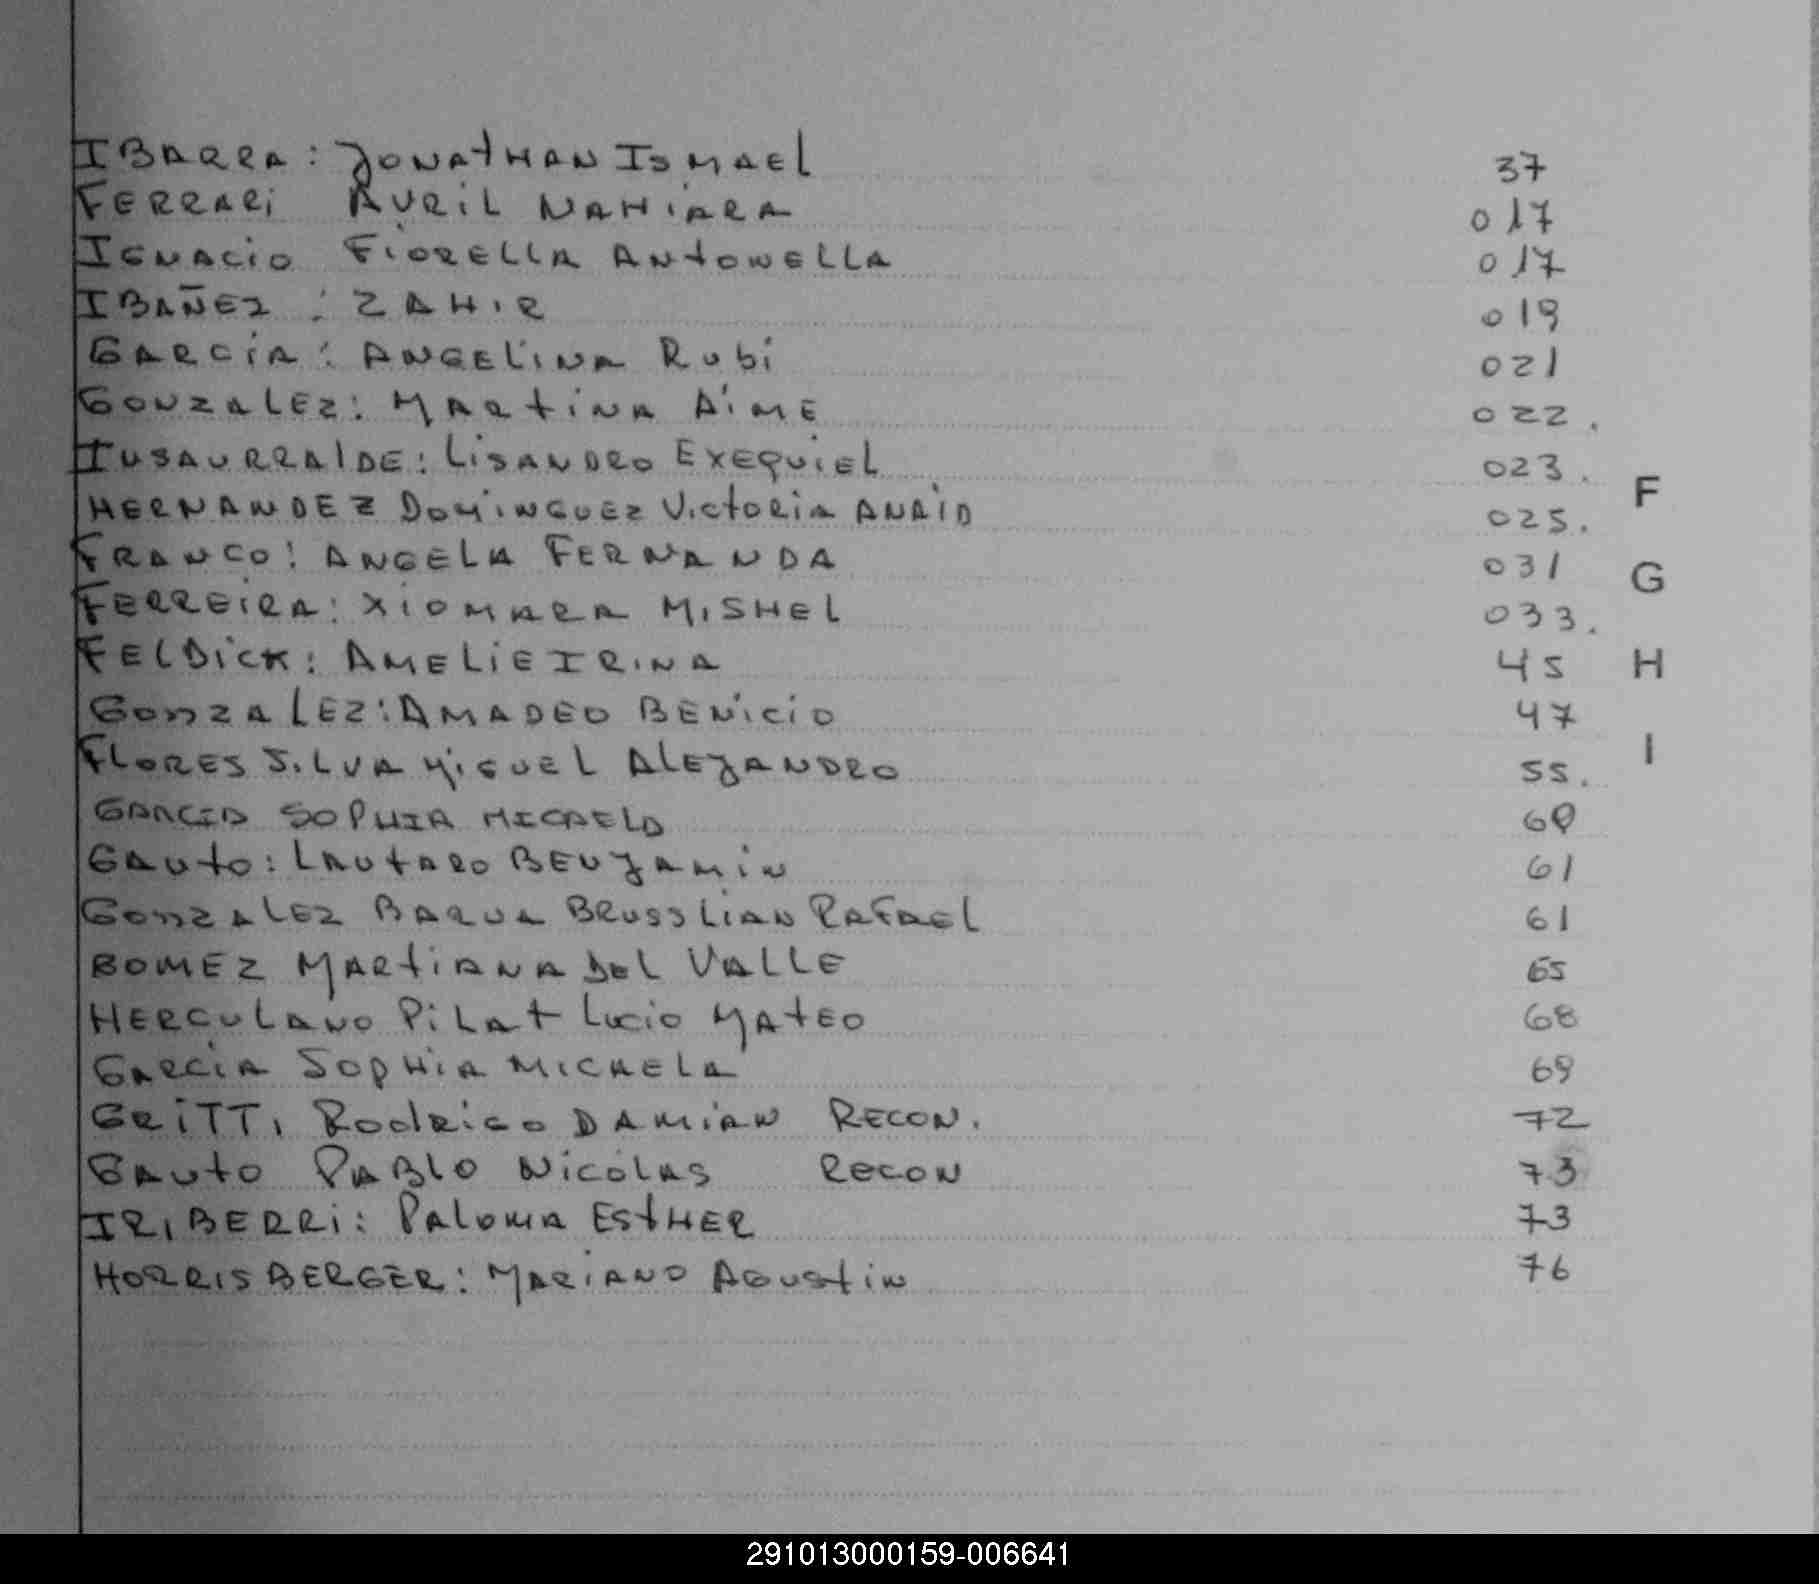 IBARRA: JONATHAN ISMAEL 37
FERRARI AVRIL NAHIARA 017
IGNACIO FIORELLA ANTONELLA 017
IBAÑEZ : ZAHIR 019
GARCÍA: ANGELINA RUBÍ 021
GONZALEZ: MARTINA AIME 022.
INSAURRALDE: LISANDRO EXEQUIEL 023.
HERNANDEZ DOMINGUEZ VICTORIA ANAID 025.
FRANCO: ANGELA FERNANDA 031
FERREIRA: XIOMARA MISHEL 033.
FELDICK: AMELIE IRINA 45
GONZALEZ: AMADEO BENICIO 47
FLORES SILVA MIGUEL ALEJANDRO 55.
GARCIA SOPHIA MICAELA 60
GAUTO: LAUTARO BENJAMIN 61
GONZALEZ BARUA BRUSSLIAN RAFAEL 61
GOMEZ MARTIANA DEL VALLE 65
HERCULANO PILAT LUCIO MATEO 68
GARCÍA SOPHIA MICAELA 69
GRITTI RODRIGO DAMIAN RECON. 72
GAUTO PABLO NICOLAS RECON 73
IRIBERRI: PALOMA ESTHER 73
HORRISBERGER: MARIANO AGUSTIN 76
F
G
H
I
291013000159-006641